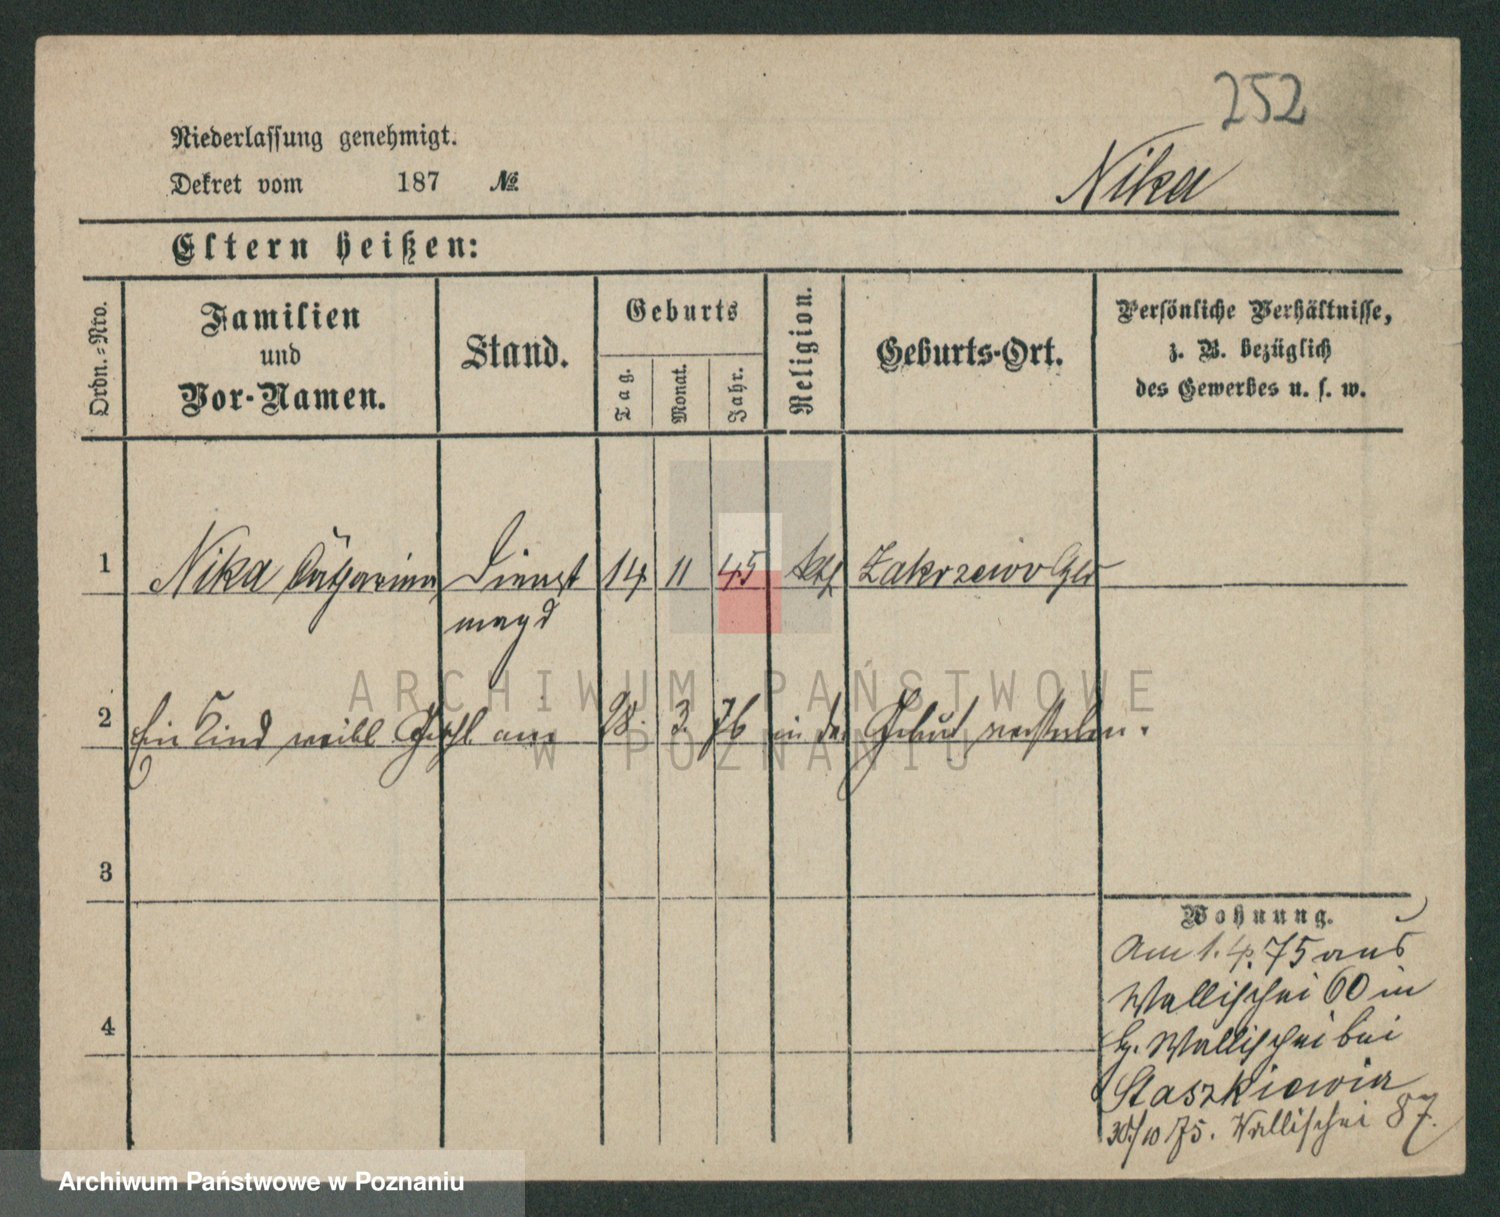 252
Niederlassung genehmigt.
Dekret vom 187 №
Nika
Eltern heißen:
Ordn.-Nro.
Familien
und
Vor-Namen.
Stand.
Geburts
Tag.
Monat.
Jahr.
Religion.
Geburts-Ort.
Persönliche Verhältnisse,
z. B. bezüglich
des Gewerbes u. s. w.
1 Nika Catharina Dienst 14 11 45 kth Zakrzewo
magd
2 Ein Kind weibl Geschl am 28. 3. 76 in der Geburt verstorben.
3
4
Wohnung.
Am 1. 4. 75 aus
Wallischei 60 in
Wallischei bei
Staszkiewicz
30/10 75. Wallischei 87.
ARCHIWUM PAŃSTWOWE
W POZNANIU
Archiwum Państwowe w Poznaniu